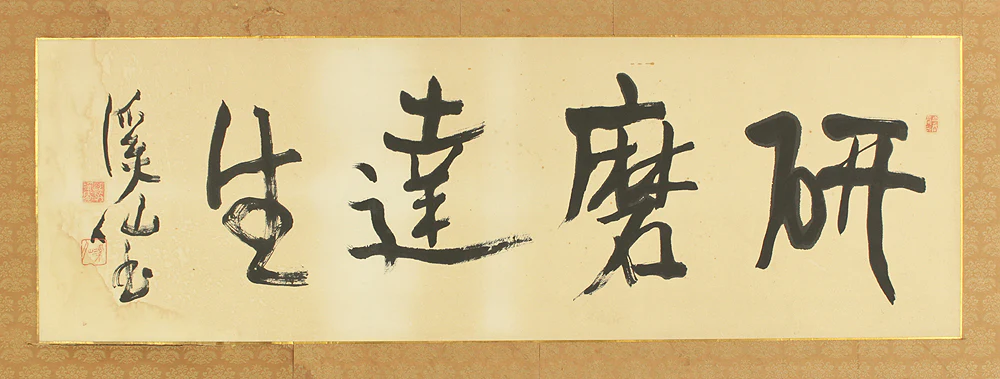 研磨達生
溪仙書